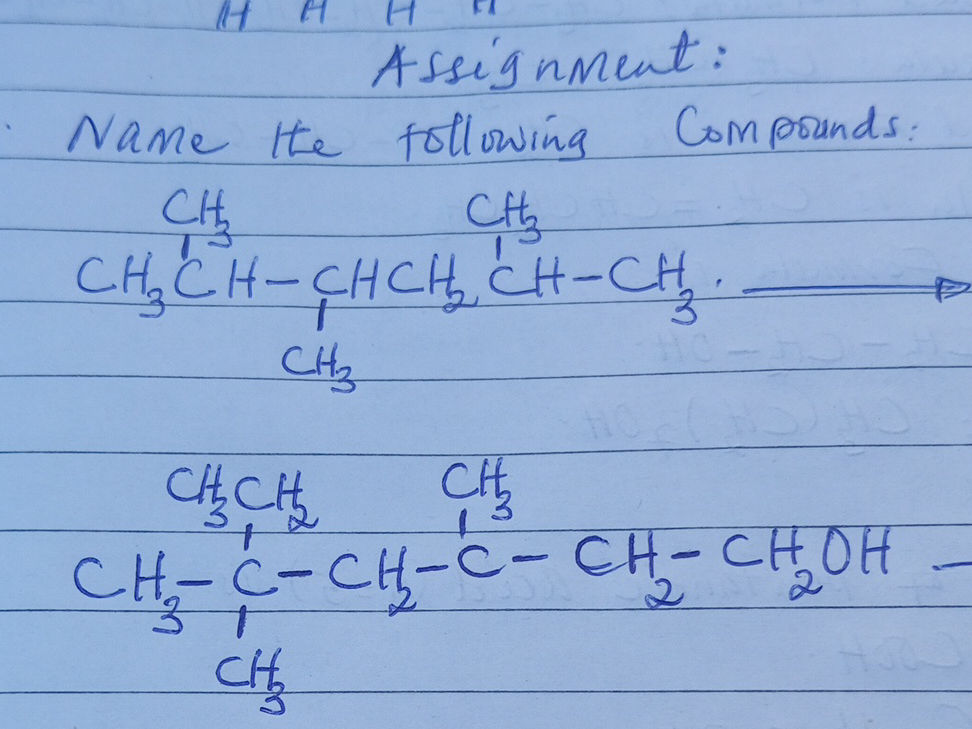 H H H H
Assignment:
Name the following Compounds:
CH₃ CH₃
CH₃CH-CHCH₂CH-CH₃.
CH₃
CH₃CH₂ CH₃
CH₃-C-CH₂-C-CH₂-CH₂OH -
CH₃